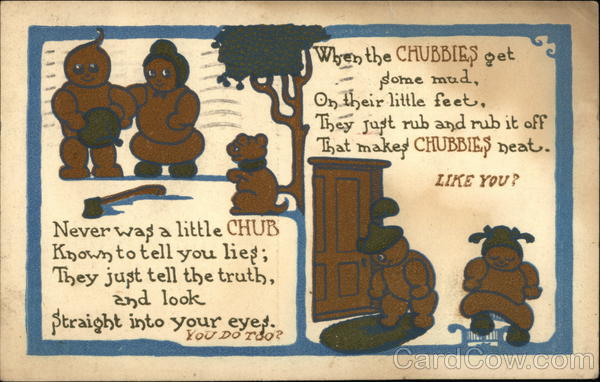 When the CHUBBIES get
some mud,
On their little feet,
They just rub and rub it off
That makes CHUBBIES neat.
LIKE YOU?
Never was a little CHUB
Known to tell you lies;
They just tell the truth,
and look
Straight into your eyes.
YOU DO TOO?
CardCow.com